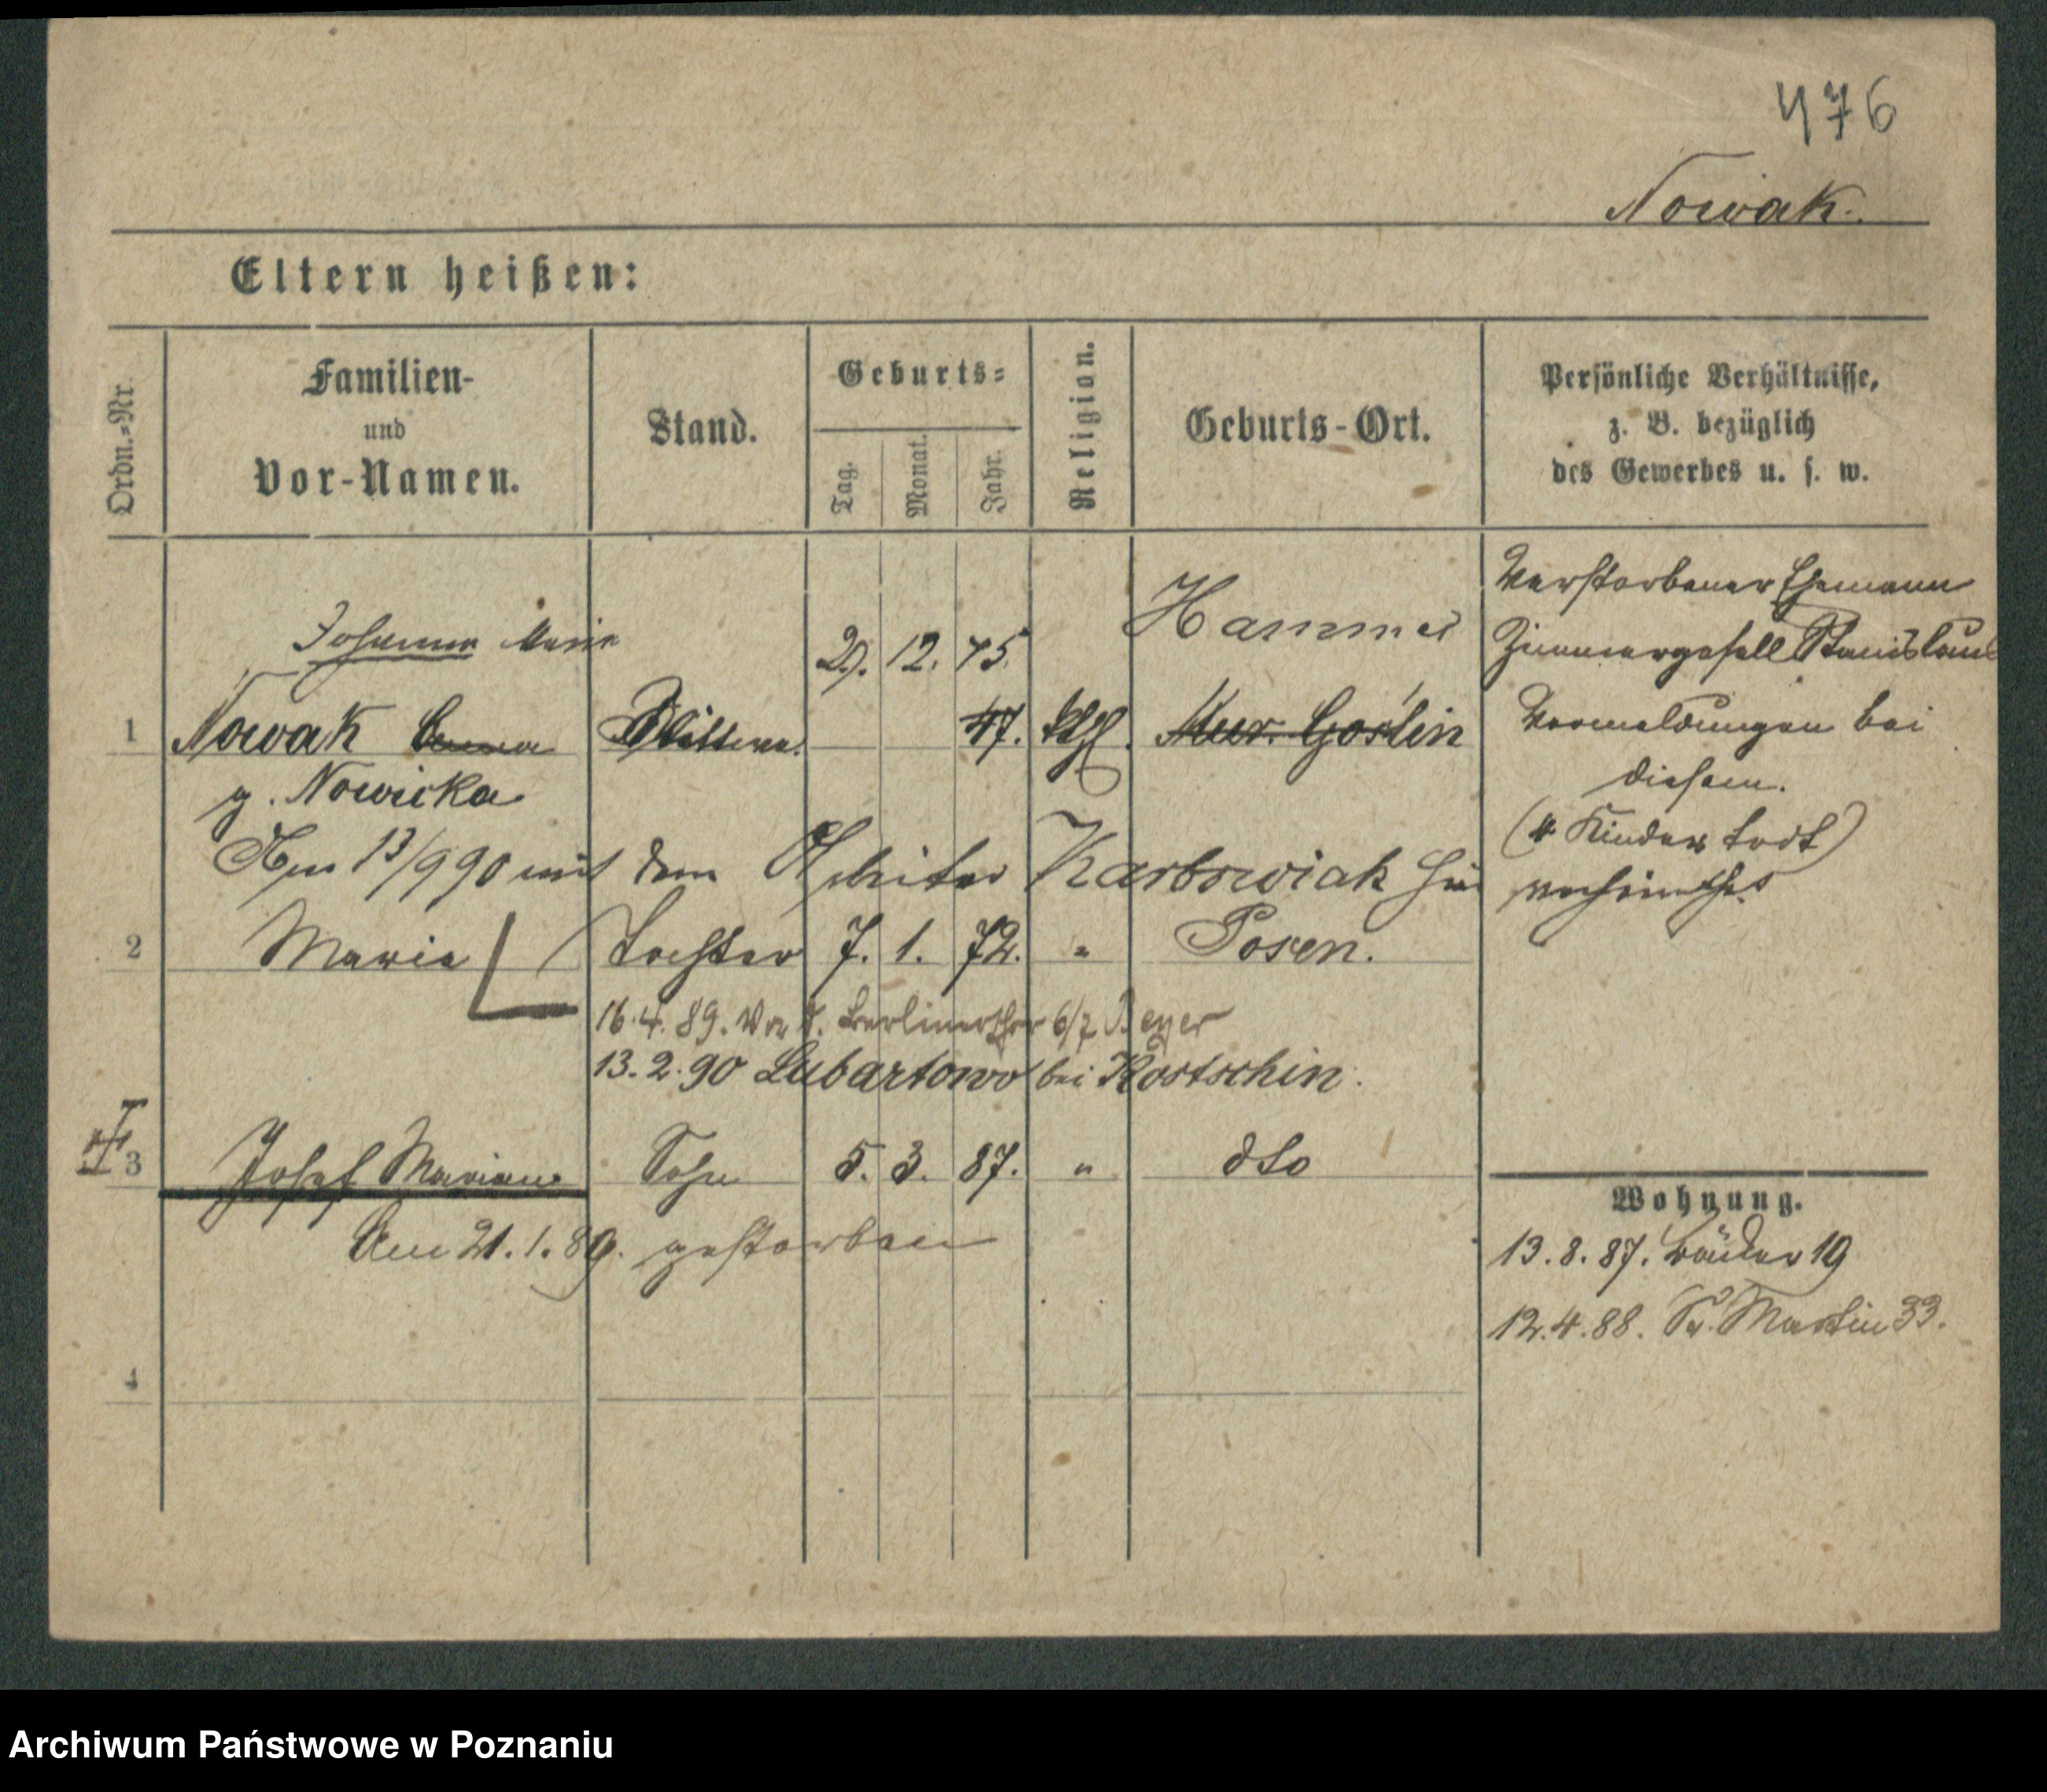 476
Nowak.
Eltern heißen:
Ordn.=Nr.
Familien-
und
Vor-Namen.
Stand.
Geburts=
Tag.
Monat.
Jahr.
Religion.
Geburts-Ort.
Persönliche Verhältnisse,
z. B. bezüglich
des Gewerbes u. s. w.
Johanna Maria 29. 12. 45. Hammer
1 Nowak 47. kth. Mur. Goslin
g. Nowicka
Verstorbener Ehemann
Zimmergesell Stanislaus
Vermeldungen bei
diesem.
(4 Kinder todt)
Am 13/9 90 mit dem Arbeiter hier
verheirathet
2 Maria Tochter 7. 1. 72. " Posen.
16.4.89. Vor d. Berlinerthor 6/7 Beyer
13.2.90 Lubartowo bei Kostschin.
3 Josef Marian Sohn 5. 3. 87. " dto
Am 21.1.89. gestorben
Wohnung.
13.8.87. Bäcker 19
12.4.88. St. Martin 33.
4
Archiwum Państwowe w Poznaniu